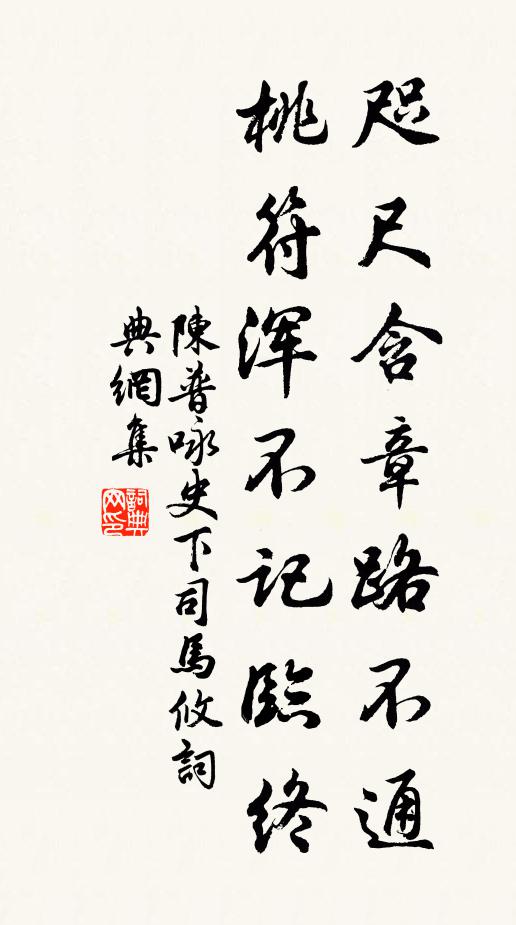 咫尺含章路不通
桃符浑不记臨终
陳普咏史下司馬攸詞
典網集
詞典
网印